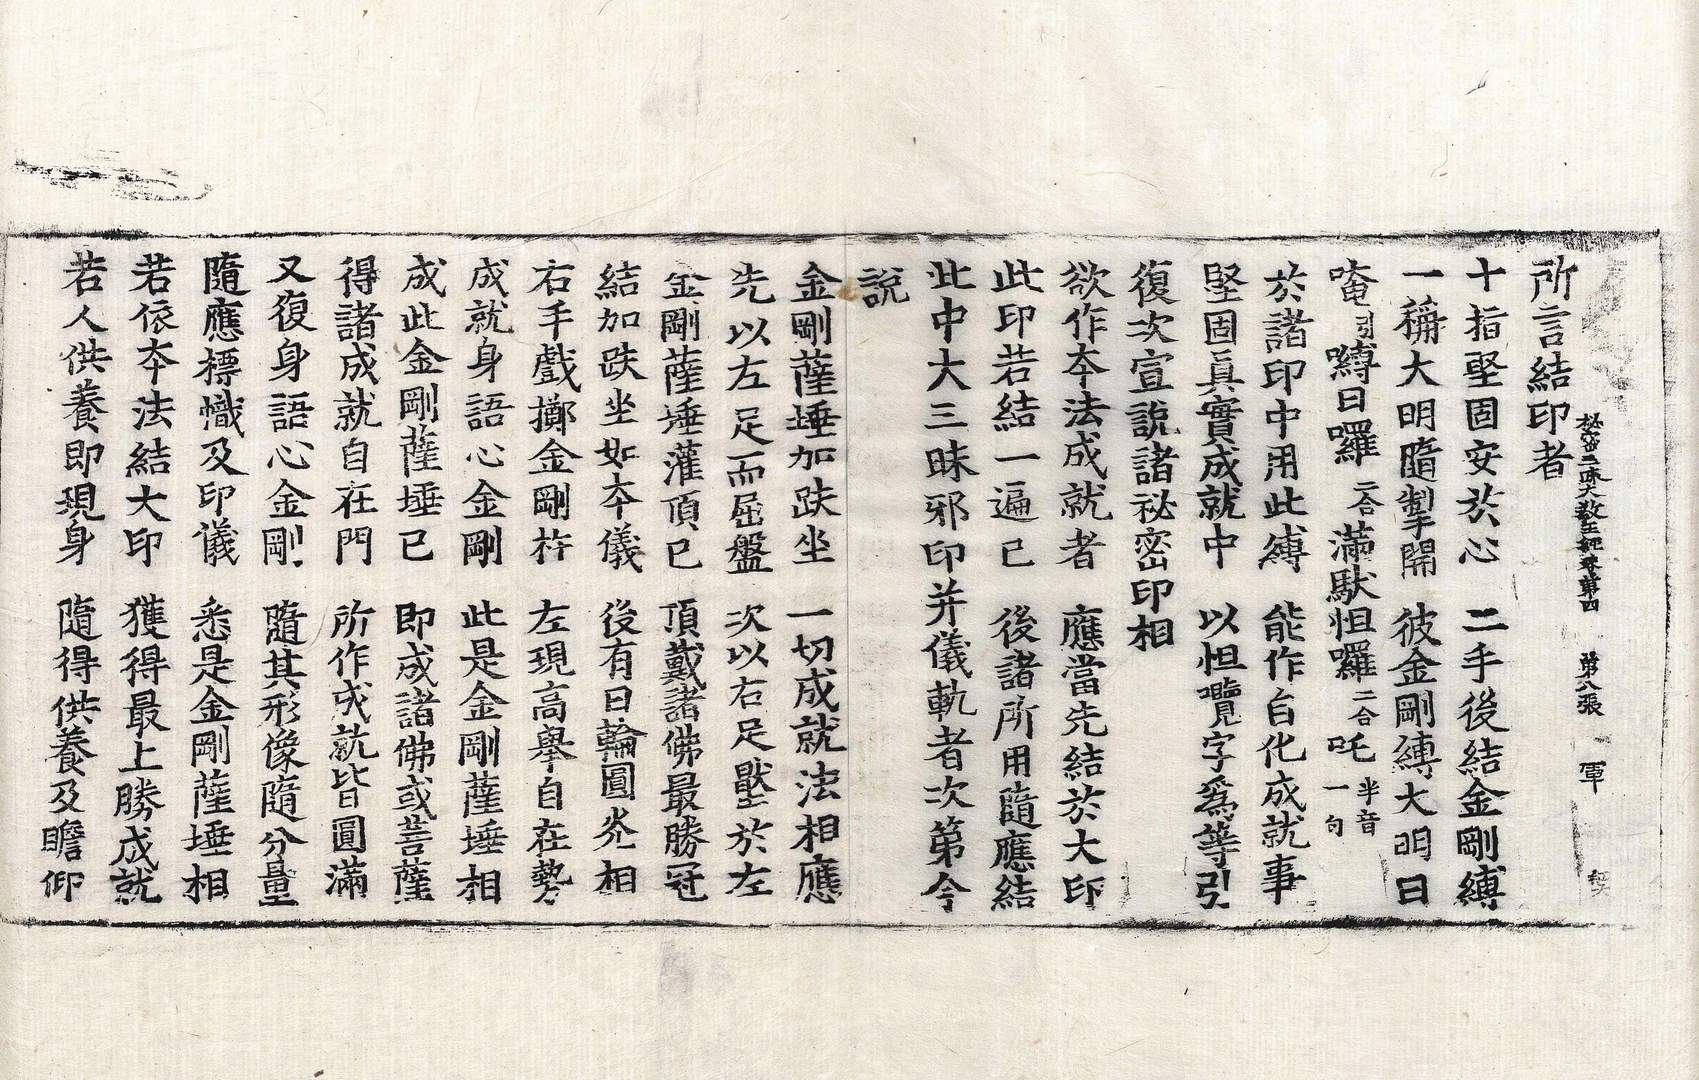 秘密三昧大教王經卷第四 第八張 軍
所言結印者
十指堅固安於心 二手後結金剛縛
一稱大明隨掣開 彼金剛縛大明曰
唵引嚩日囉二合滿馱怛囉二合吒半音一句
於諸印中用此縛 能作自化成就事
堅固真實成就中 以怛囕字為等引
復次宣說諸秘密印相
欲作本法成就者 應當先結於大印
此印若結一遍已 後諸所用隨應結
此中大三昧邪印并儀軌者次第今
說
金剛薩埵加趺坐 一切成就法相應
先以左足而屈盤 次以右足壓於左
金剛薩埵灌頂已 頂戴諸佛最勝冠
結加趺坐如本儀 後有日輪圓光相
右手戲擲金剛杵 左現高舉自在勢
成就身語心金剛 此是金剛薩埵相
成此金剛薩埵已 即成諸佛或菩薩
得諸成就自在門 所作成就皆圓滿
又復身語心金剛 隨其形像隨分量
隨應標幟及印儀 悉是金剛薩埵相
若依本法結大印 獲得最上勝成就
若人供養即現身 隨得供養及瞻仰